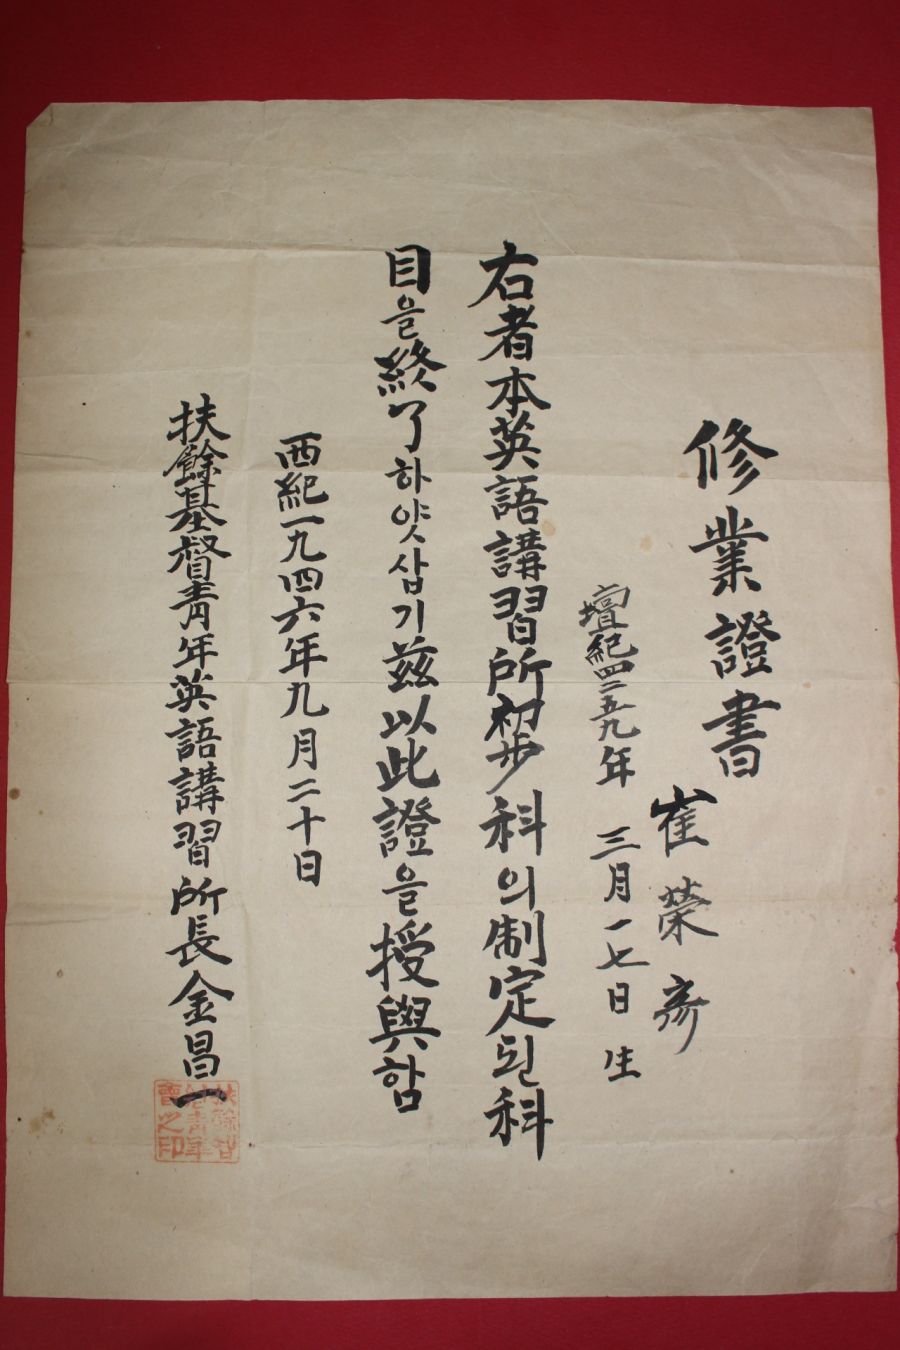 修業證書
崔榮彦
檀紀四二五九年 三月一七日 生
右者本英語講習所初步科의制定된科
目을終了하얏삼기玆以此證을授與함
西紀一九四六年九月二十日
扶餘基督青年英語講習所長金昌一
扶餘基
青年
會之印